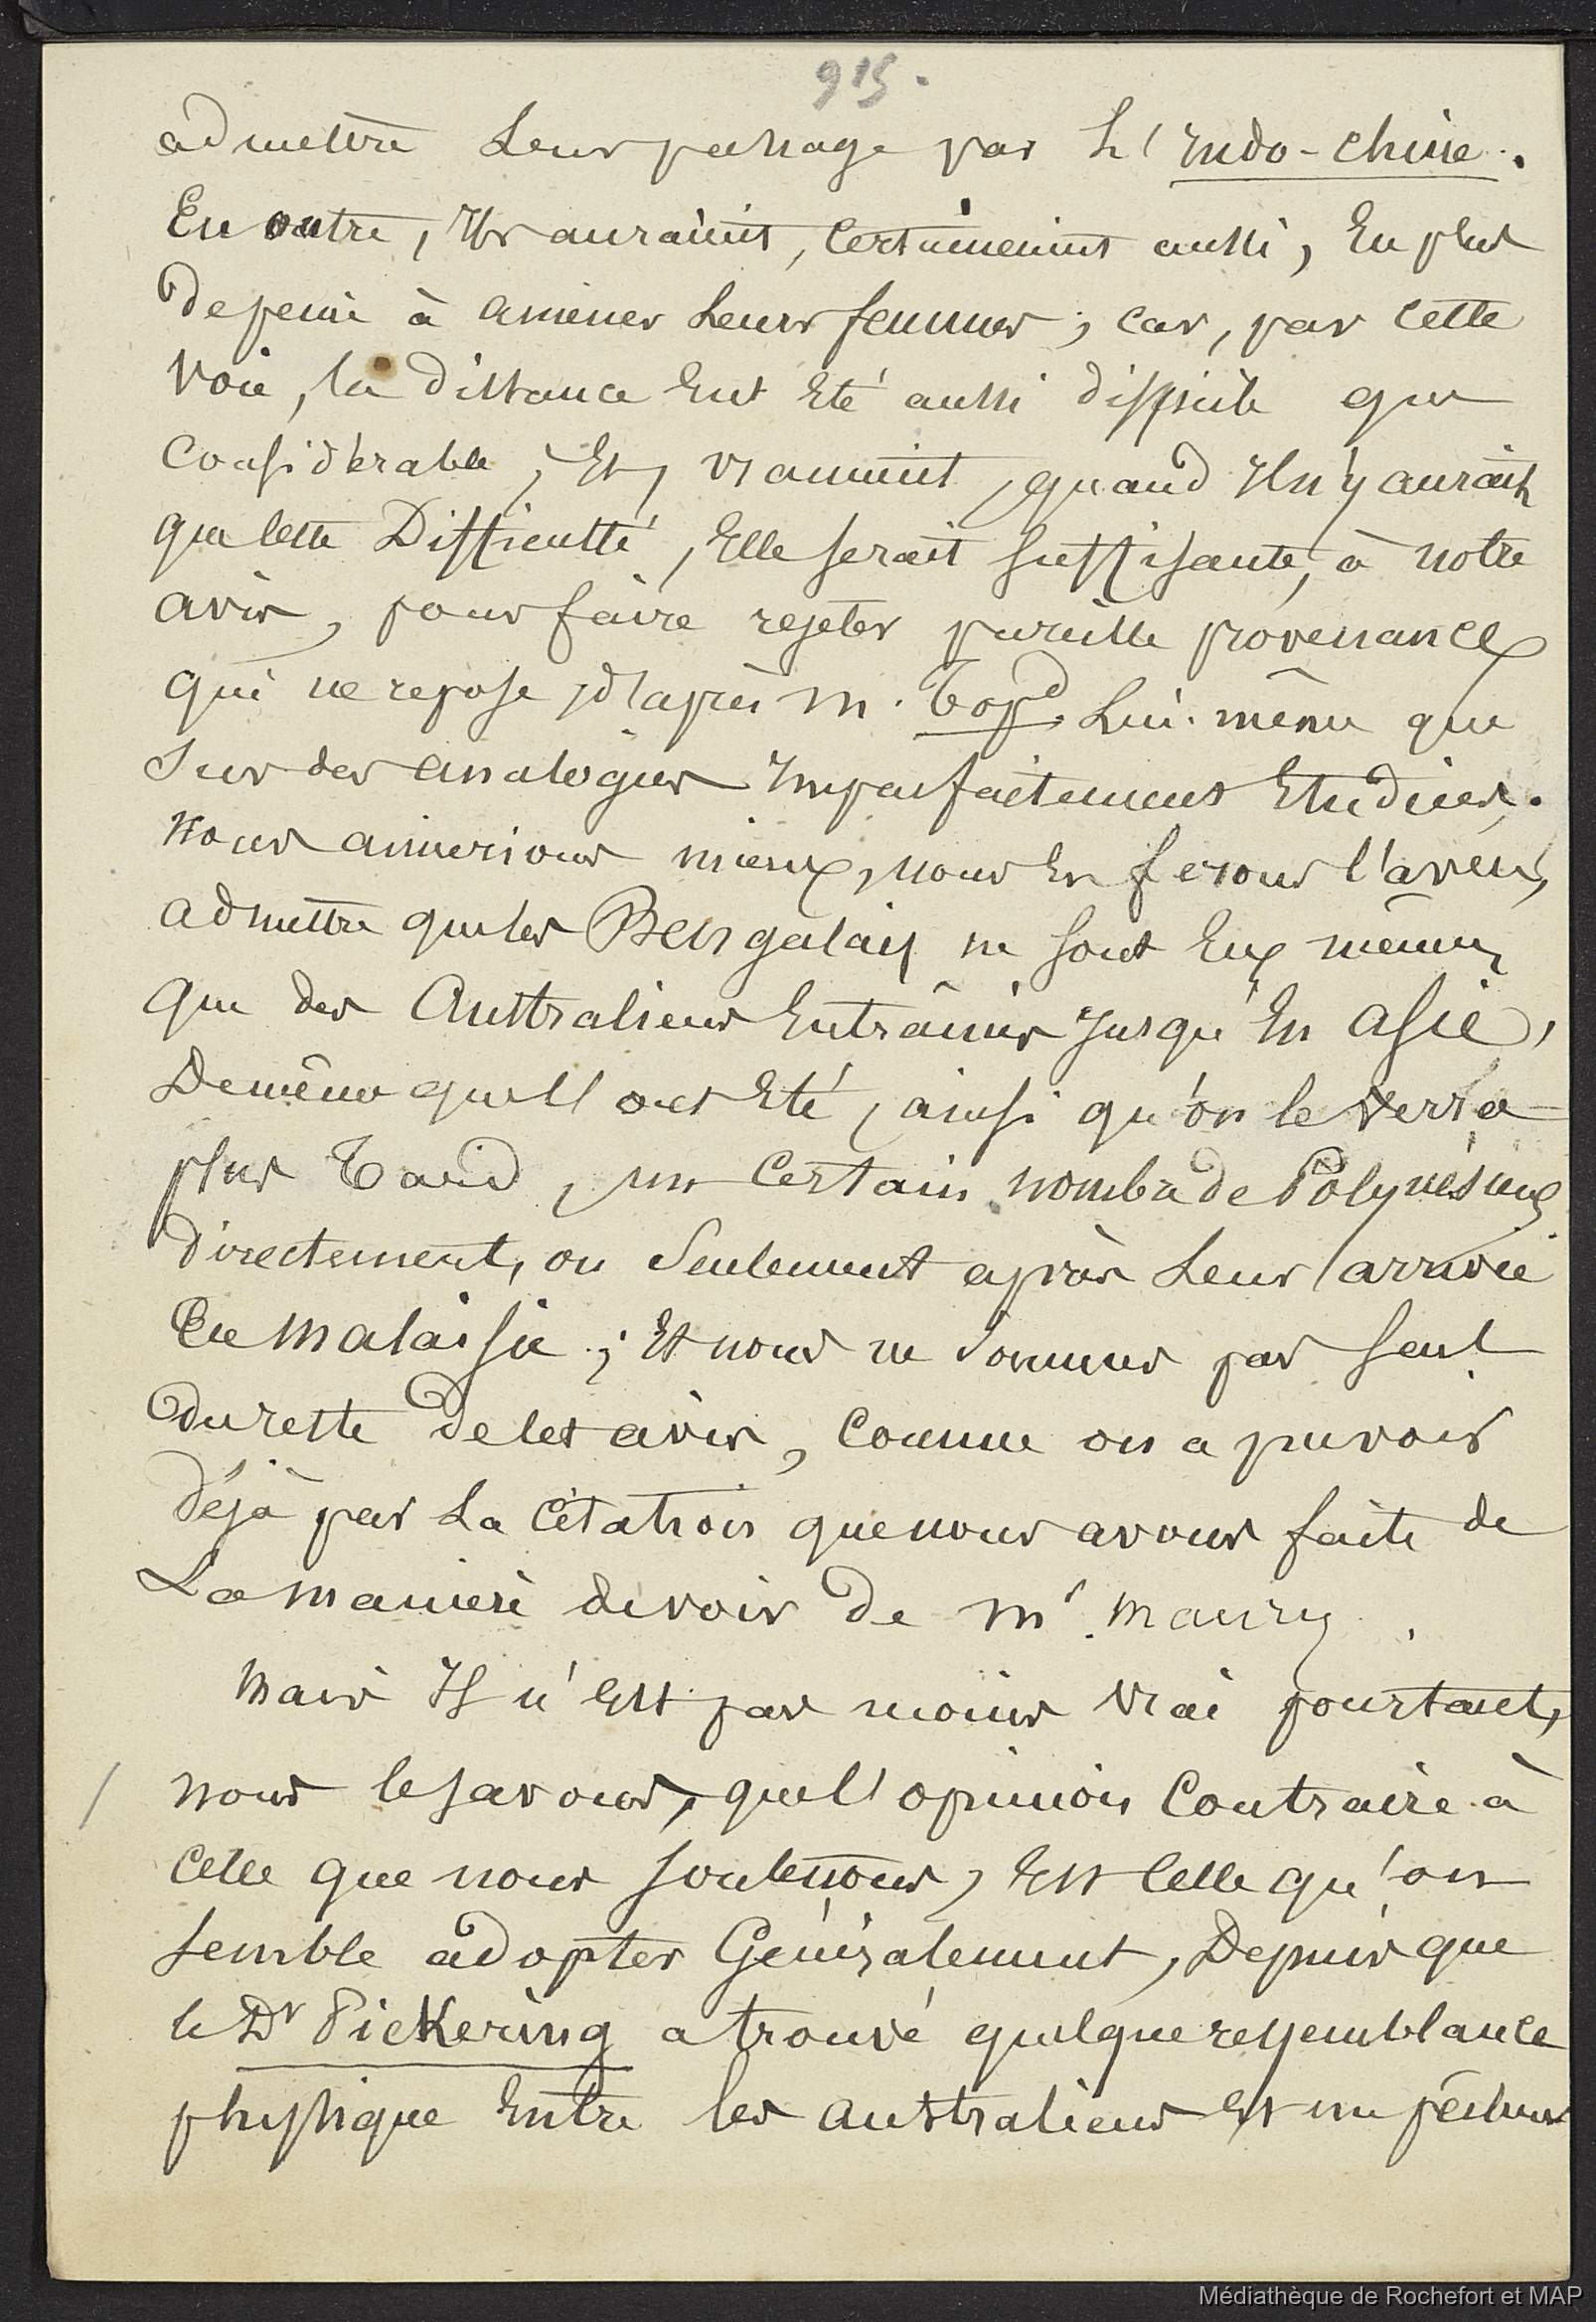 915.
admettre Leur passage par L'Indo-Chine.
En outre, Ils auraient, Certainement aussi, Eu plus
de peine à amener Leurs femmes; car, par cette
voie, la distance Eut Eté aussi difficile que
Considérable; Et, vraiment, quand Il n'y aurait
que cette Difficulté, Elle serait suffisante, à notre
avis, pour faire rejeter pareille provenance
qui ne repose, d'après M. Topd. Lui-même que
Sur des analogies Imparfaitement Etudiées.
Nous aimerions mieux, nous En ferons l'aveu,
admettre que les Bengalais ne sont Eux mêmes
que des Australiens Entrainés Jusqu'En Asie,
De même que l'ont Eté, ainsi qu'on le verra
plus Tard, un Certain nombre de Polynésiens
directement, ou Seulement après Leur arrivée
En Malaisie; Et nous ne Sommes pas seul
du reste de cet avis, Comme on a pu voir
déjà par La Citation que nous avons faite de
La manière de voir de Mr. Maury.
Mais Il n'Est pas moins vrai pourtant,
/ nous le savons, que l'opinion Contraire à
Celle que nous soutenons, Est Celle qu'on
semble adopter Généralement, Depuis que
le Dr Pickering a trouvé quelque ressemblance
physique Entre les australiens Et un pécheur
Médiathèque de Rochefort et MAP